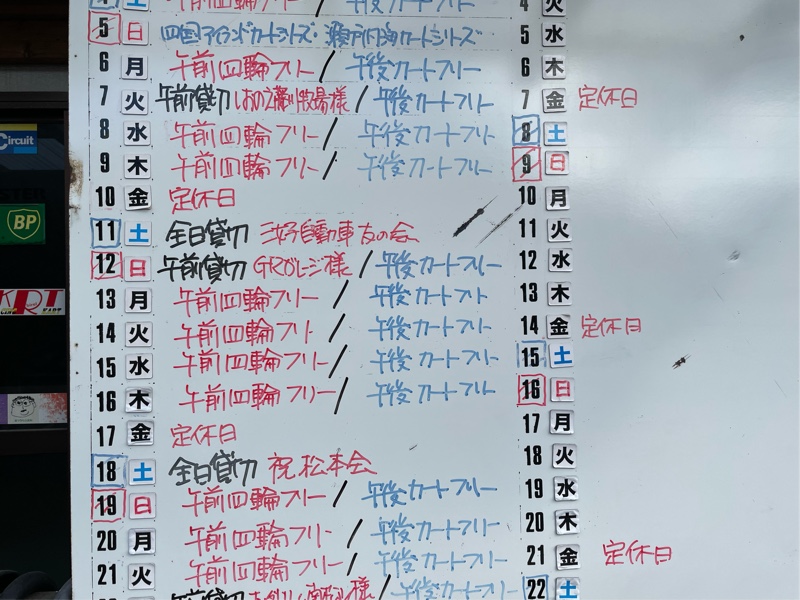 土 午前四輪フリー / 午後カートフリー
5 日 四国アイランドカートシリーズ・瀬戸内海カートシリーズ
6 月 午前四輪フリー / 午後カートフリー
7 火 午前貸切 牧場様 / 午後カートフリー
8 水 午前四輪フリー / 午後カートフリー
9 木 午前四輪フリー / 午後カートフリー
10 金 定休日
11 土 全日貸切 自動車友の会
12 日 午前貸切 GRガレージ様 / 午後カートフリー
13 月 午前四輪フリー / 午後カートフリー
14 火 午前四輪フリー / 午後カートフリー
15 水 午前四輪フリー / 午後カートフリー
16 木 午前四輪フリー / 午後カートフリー
17 金 定休日
18 土 全日貸切 祝松本会
19 日 午前四輪フリー / 午後カートフリー
20 月 午前四輪フリー / 午後カートフリー
21 火 午前四輪フリー / 午後カートフリー
午前貸切 様 / 午後カートフリー
4 火
5 水
6 木
7 金 定休日
8 土
9 日
10 月
11 火
12 水
13 木
14 金 定休日
15 土
16 日
17 月
18 火
19 水
20 木
21 金 定休日
22 土
Circuit
BP
KRT